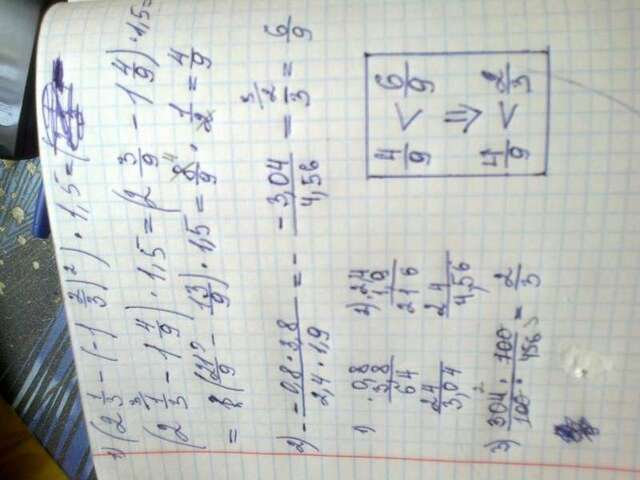 1) (2 1/3 - (-1 2/3)²) · 1,5 =
(2 1/3 - 1 4/9) · 1,5 = (2 3/9 - 1 4/9) · 1,5 =
= (21/9 - 13/9) · 1,5 = 8/9 · 1/2 = 4/9
2) - 0,8 · 3,8 / 2,4 · 1,9 = - - 3,04 / 4,56 = 2/3 = 6/9
1) 0,8
3,8
64
24
3,04
2) 2,4
1,9
216
24
4,56
3) 304/100 · 100/456 = 2/3
4/9 < 6/9
⇓
4/9 < 2/3